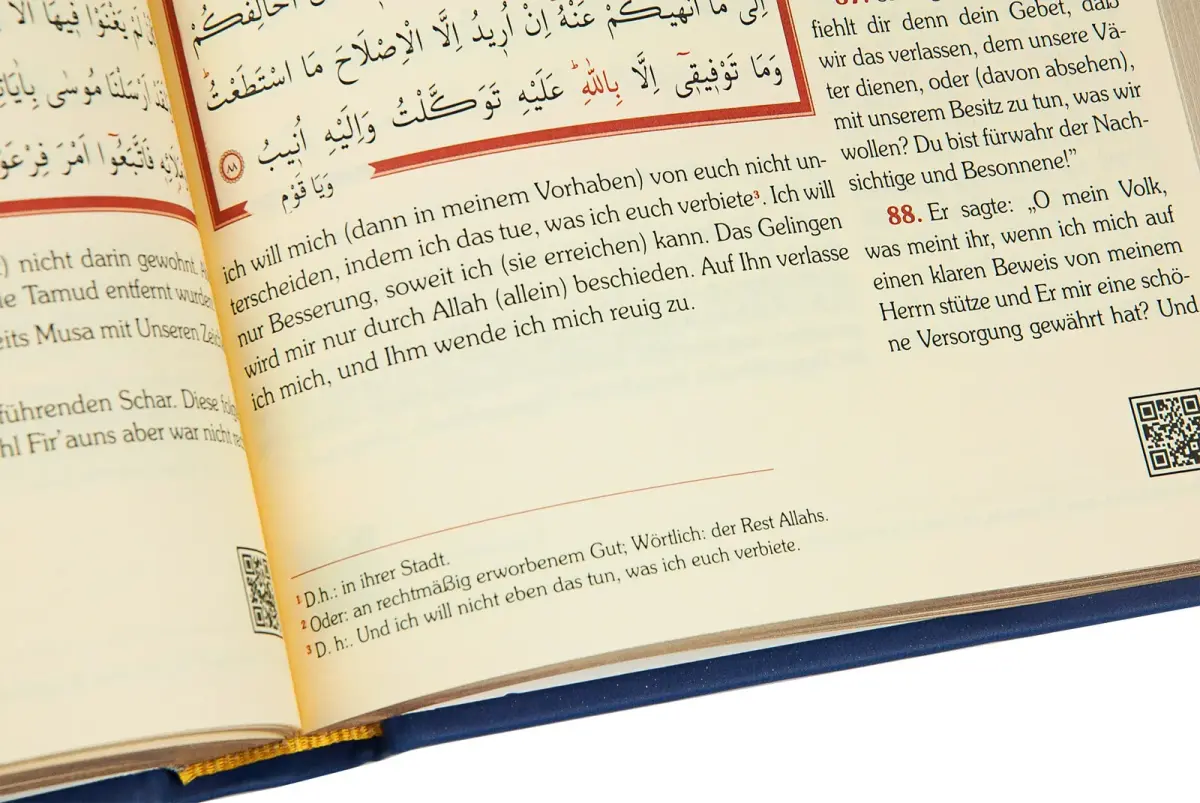 لَمْ يَغْنَوْا فٖيهَا اَلَا
اَرْسَلْنَا مُوسٰى بِاٰيَاتِنَا
فَاتَّبَعُٓوا اَمْرَ فِرْعَوْنَ
nicht darin gewohnt.
Tamud entfernt wurden
Musa mit Unseren
führenden Schar. Diese
Fir'auns aber war nicht
اُخَالِفَكُمْ
اِلٰى مَٓا اَنْهٰيكُمْ عَنْهُ اِنْ اُرٖيدُ اِلَّا الْاِصْلَاحَ مَا اسْتَطَعْتُ
وَمَا تَوْفٖيقٖٓي اِلَّا بِاللّٰهِ عَلَيْهِ تَوَكَّلْتُ وَاِلَيْهِ اُنٖيبُ ٨٨
وَيَا قَوْمِ
fiehlt dir denn dein Gebet, daß
wir das verlassen, dem unsere Vä-
ter dienen, oder (davon absehen),
mit unserem Besitz zu tun, was wir
wollen? Du bist fürwahr der Nach-
sichtige und Besonnene!”
88. Er sagte: „O mein Volk,
was meint ihr, wenn ich mich auf
einen klaren Beweis von meinem
Herrn stütze und Er mir eine schö-
ne Versorgung gewährt hat? Und
ich will mich (dann in meinem Vorhaben) von euch nicht un-
terscheiden, indem ich das tue, was ich euch verbiete³. Ich will
nur Besserung, soweit ich (sie erreichen) kann. Das Gelingen
wird mir nur durch Allah (allein) beschieden. Auf Ihn verlasse
ich mich, und Ihm wende ich mich reuig zu.
¹ D.h.: in ihrer Stadt.
² Oder: an rechtmäßig erworbenem Gut; Wörtlich: der Rest Allahs.
³ D. h:. Und ich will nicht eben das tun, was ich euch verbiete.